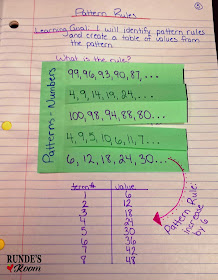 Pattern Rules
Learning Goal: I will identify pattern rules
and create a table of values from
the pattern.
What is the rule?
Patterns - Numbers
99, 96, 93, 90, 87, ...
4, 9, 14, 19, 24, ...
100, 98, 94, 88, 80...
4, 9, 5, 10, 6, 11, 7...
6, 12, 18, 24, 30...
term# value
1 6
2 12
3 18
4 24
5 30
6 36
7 42
8 48
Pattern Rule:
increase
by 6
RUNDE'S
Room